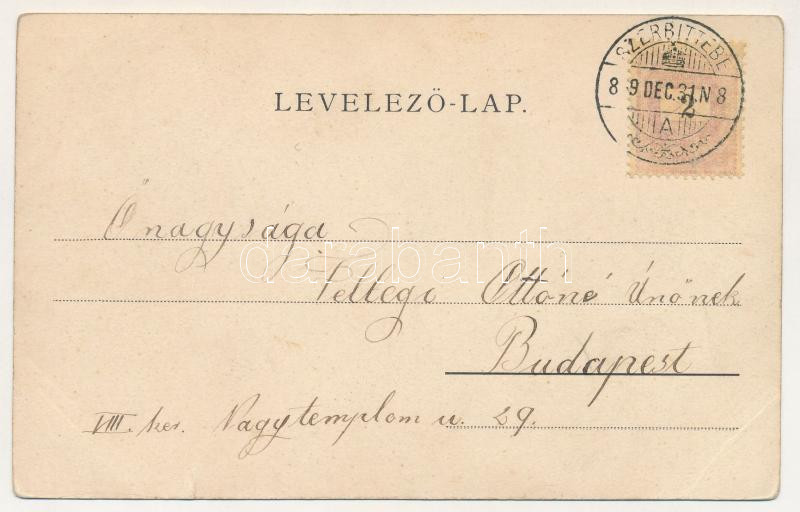 SZERBITTEBE
8 9 DEC. 31. N 8
2
A
LEVELEZŐ-LAP.
Őnagysága
darabanth
Pellegi Ottóné Úrnőnek
Budapest
VIII. ker. Nagytemplom u. 29.